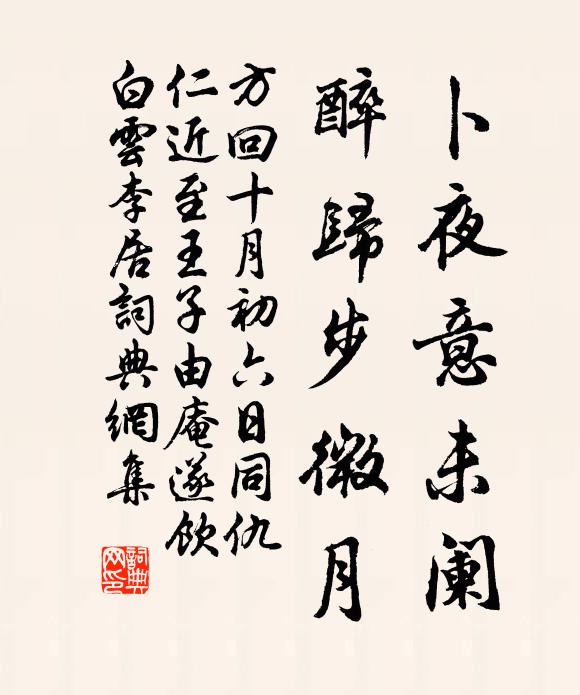 卜夜意未阑
醉歸步微月
方回十月初六日同仇
仁近至王子由庵遂飲
白雲李居詞典網集
詞典网印